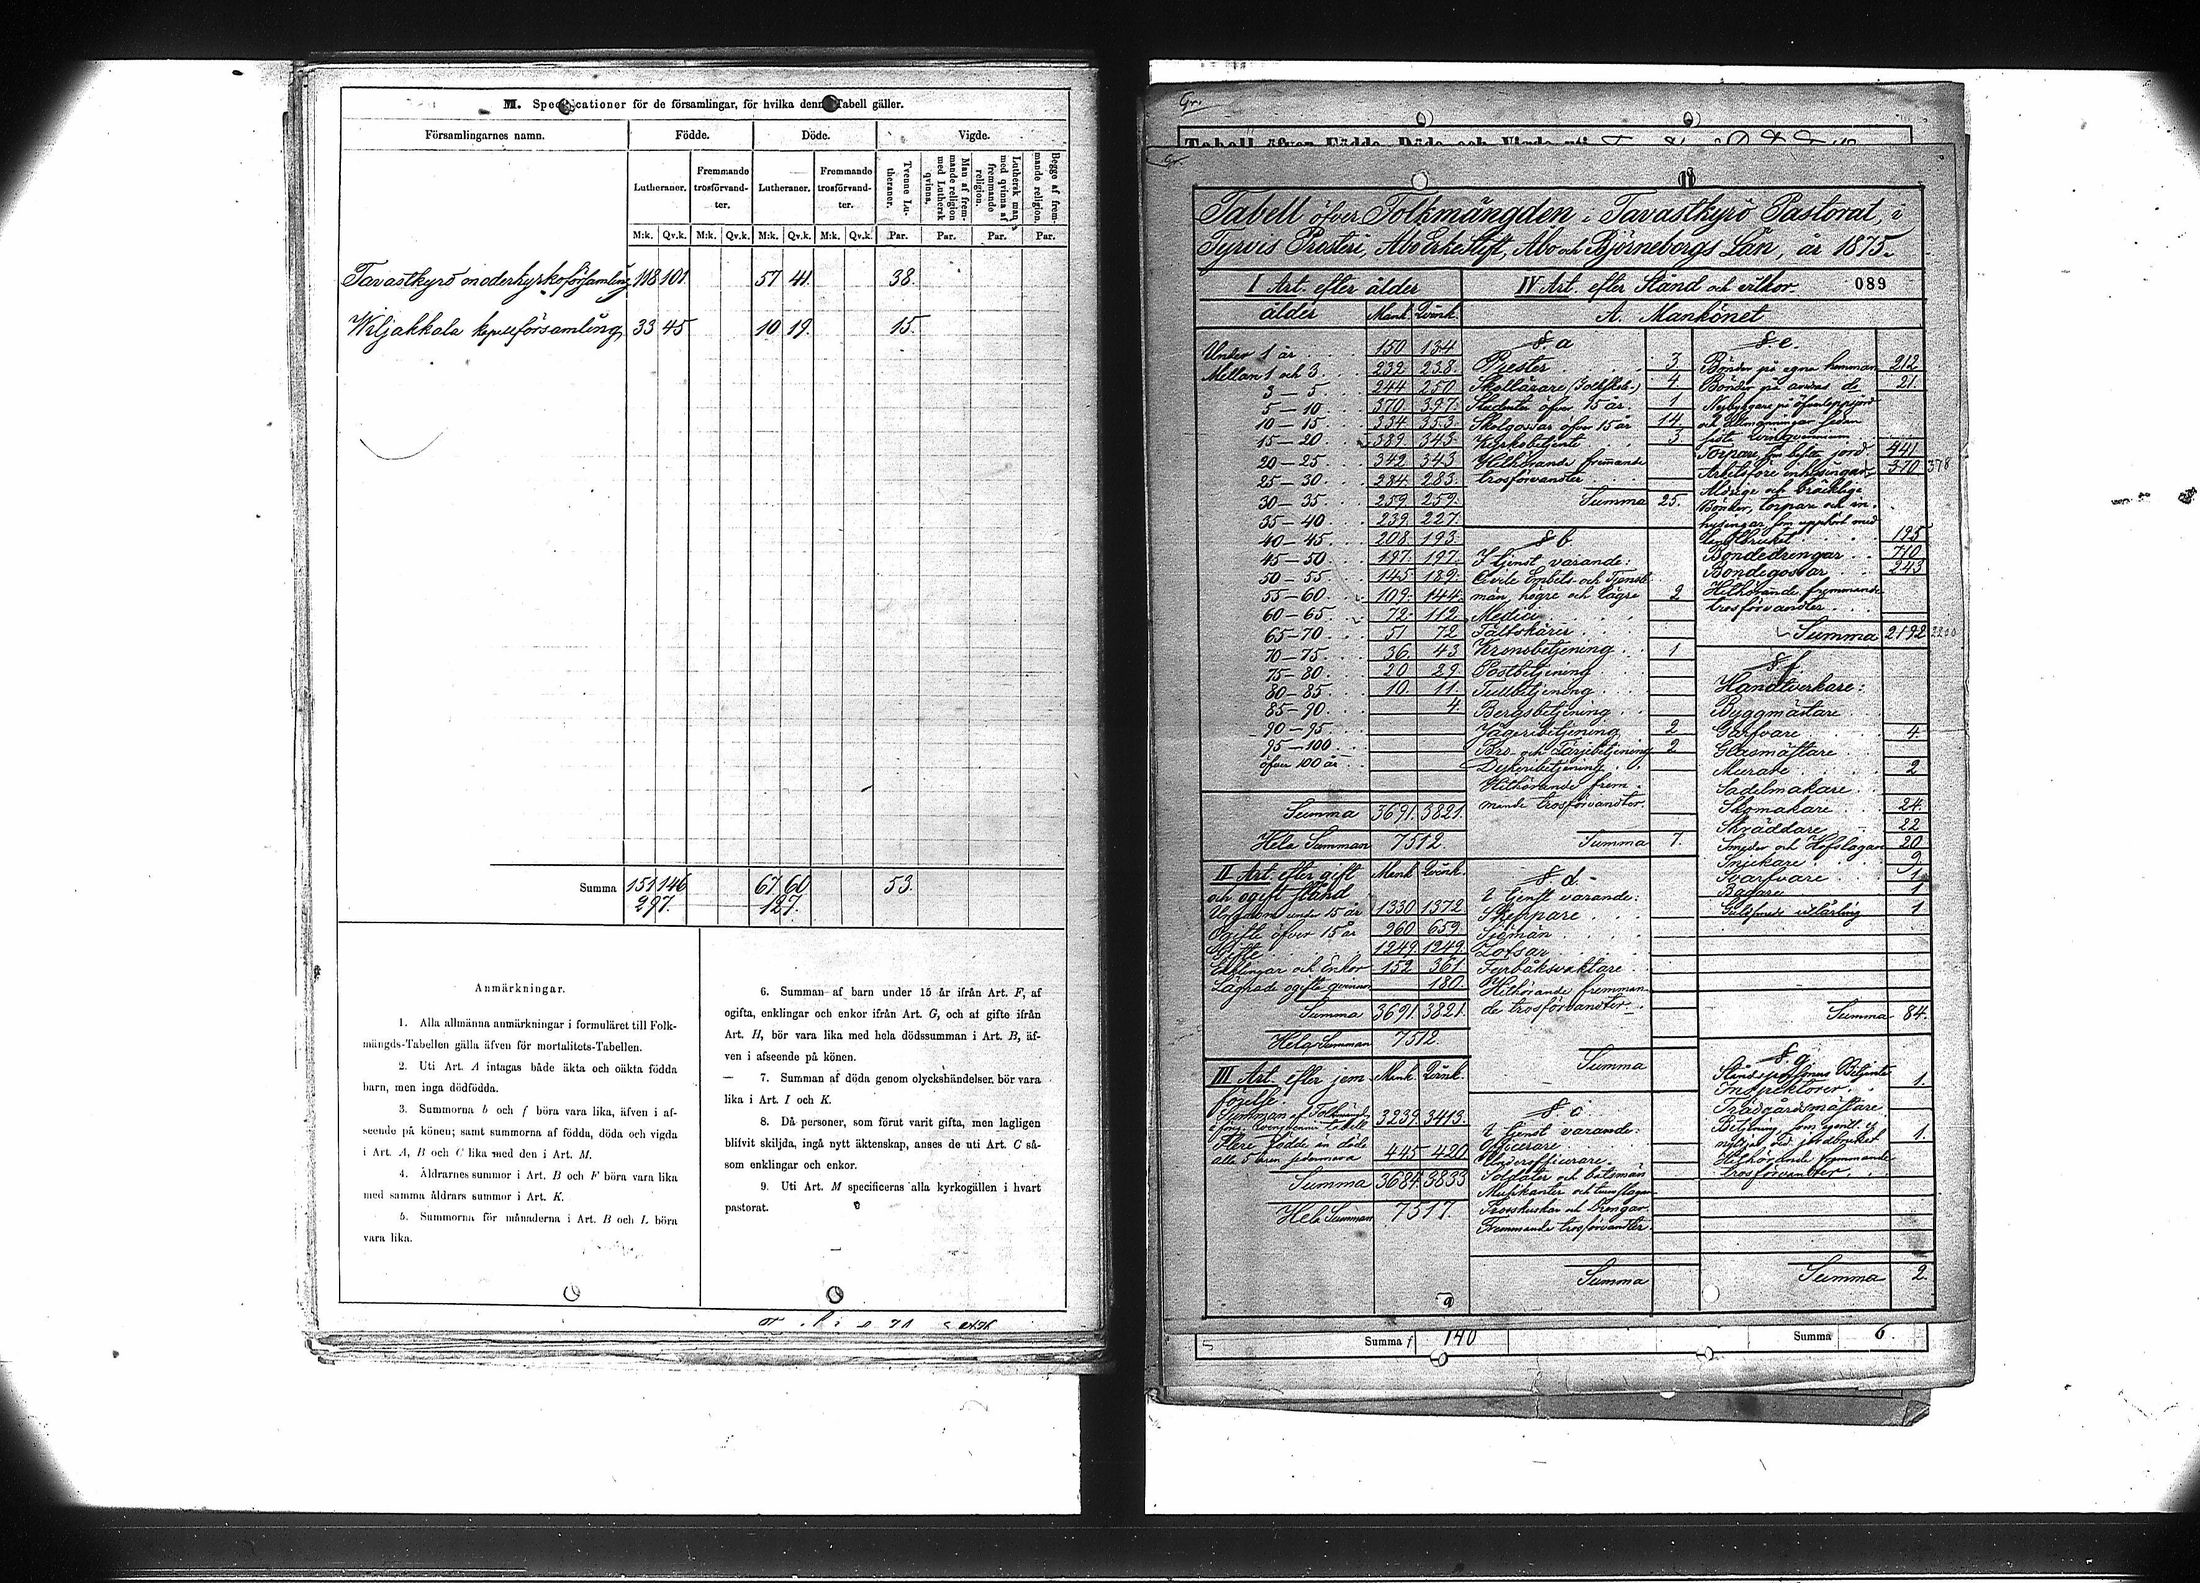 M. Specificationer för de församlingar, för hvilka denna Tabell gäller.
Församlingarnes namn. Födde. Döde. Vigde.
Lutheraner. Fremmande trosförvandter. Lutheraner. Fremmande trosförvandter. Tvenne Lutheraner. Man af fremmande religion med Luthersk qvinna. Luthersk man med qvinna af fremmande religion. Begge af fremmande religion.
M:k. Qv.k. M:k. Qv.k. M:k. Qv.k. M:k. Qv.k. Par. Par. Par. Par.
Tavastkyrö moderkyrkoförsamling 118 101 57 41. 38.
Wiljakkala kapellförsamling 33 45 10 19. 15.
Summa 151 146 67 60 53.
297. 127.
Anmärkningar.
1. Alla allmänna anmärkningar i formuläret till Folk-
mängds-Tabellen gälla äfven för mortalitets-Tabellen.
2. Uti Art. A intagas både äkta och oäkta födda
barn, men inga dödfödda.
3. Summorna b och f böra vara lika, äfven i af-
seende på könen; samt summorna af födda, döda och vigda
i Art. A, B och C lika med den i Art. M.
4. Åldrarnes summor i Art. B och F böra vara lika
med samma åldrars summor i Art. K.
5. Summorna för månaderna i Art. B och L böra
vara lika.
6. Summan af barn under 15 år ifrån Art. F, af
ogifta, enklingar och enkor ifrån Art. G, och af gifte ifrån
Art. H, bör vara lika med hela dödssumman i Art. B, äf-
ven i afseende på könen.
7. Summan af döda genom olyckshändelser bör vara
lika i Art. I och K.
8. Då personer, som förut varit gifta, men lagligen
blifvit skiljda, ingå nytt äktenskap, anses de uti Art. C så-
som enklingar och enkor.
9. Uti Art. M specificeras alla kyrkogällen i hvart
pastorat.
Gr.
Tabell öfver Födde, Döde och Vigde uti
Gr.
Tabell öfver Folkmängden i Tavastkyrö Pastorat, i
Tyrvis Prosteri, Åbo Erke Stift, Åbo och Björneborgs Län, år 1875.
I Art. efter ålder
ålder Mank. Qvink.
Under 1 år 150 134
Mellan 1 och 3 239. 238.
3 – 5 244 250
5 – 10 370 397.
10 – 15 334 353.
15 – 20 389. 343.
20 – 25 342 343
25 – 30 284. 283.
30 – 35 259 259.
35 – 40 239. 227.
40 – 45 208. 193.
45 – 50 197. 197.
50 – 55 145. 189.
55 – 60 109. 144.
60 – 65 72. 112.
65 – 70 51 72
70 – 75 36. 43
75 – 80 20 29.
80 – 85 10. 11.
85 – 90 4.
90 – 95
95 – 100
öfver 100 år
Summa 3691. 3821.
Hela Summan 7512.
II Art. efter gift och ogift stånd Mank. Qvink.
Ungdom under 15 år 1330 1372
Ogifte öfver 15 år 960 659.
Gifte 1249. 1249.
Enklingar och Enkor 152 361
Lägrade ogifte qvinnor 180.
Summa 3691. 3821.
Hela Summan 7512.
III Art. efter jemförelse. Mank. Qvink.
Summan af Folkmängd 3239. 3413.
Flere födde än döde
alla 5 åren sedermera 445 420
Summa 3684. 3833
Hela Summan 7517.
IV Art. efter Stånd och vilkor. 089
A. Mankönet
§. a
Prester 3.
Skollärare (Folkskol.) 4
Studenter öfver 15 år 1
Skolgossar öfver 15 år 14
Kyrkobetjente 3.
Hithörande fremmande
trosförvandter
Summa 25.
§ b
I tjenst varande:
Civile Embets och Tjenste
män, högre och lägre 2
Medici
Fältskärer
Kronobetjening 1
Postbetjening
Tullbetjening
Bergsbetjening
Jägeribetjening 2
Bro- och Färjebetjening 2
Dykeribetjening
Hithörande frem-
mande trosförvandter.
Summa 7.
§ d.
I tjenst varande:
Skeppare
Sjömän
Lotsar
Fyrbåksvaktare
Hithörande fremman-
de trosförvandter
Summa
§ c
I tjenst varande:
Officerare
Underofficerare
Soldater och båtsmän
Musikanter och trumslagare
Trosskuskar och drengar
Fremmande trosförvandter.
Summa
§. e.
Bönder på egna hemman 212
Bönder på andras d:o 21.
Torpare som hafva jord 441
Arbetsföre inhysingar 370 378
Åldrige och bräcklige
Bönder, torpare och in-
hysingar som upphört med
landtbruket 195
Bondedrengar 710
Bondegossar 243
Hithörande fremmande
trosförvandter
Summa 2192 2200
§. f
Handtverkare:
Byggmästare
Garfvare 4.
Glasmästare
Murare 2
Sadelmakare
Skomakare 24.
Skräddare 22
Smeder och Hofslagare 20
Snickare 9.
Svarfvare 1
Bagare 1
Guldsmeds utlärling 1
Summa 84.
§. g.
Ståndspersoners Betjente
Inspektorer 1.
Trädgårdsmästare
Betjening som egentl. ej
nyttjas vid jordbruket 1.
Hithörande fremmande
trosförvandter
Summa 2.
Summa f 140 Summa 6.